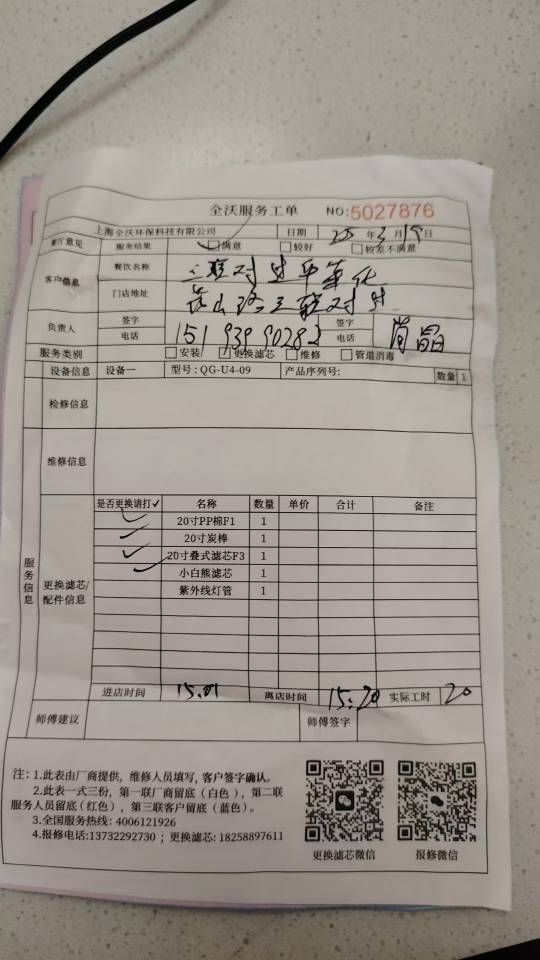 全沃服务工单 NO:5027876
上海全沃环保科技有限公司 日期 年 3 月 19 日
餐厅意见 服务结果 满意 较好 较差不满意
客户信息 餐饮名称
门店地址
负责人 签字 签字
电话 电话
服务类别 安装 更换滤芯 维修 管道消毒
设备信息 设备一 型号: QG-U4-09 产品序列号: 数量 1
检修信息
维修信息
服务信息 更换滤芯/配件信息
是否更换请打✓ 名称 数量 单价 合计 备注
✓ 20寸PP棉F1 1
✓ 20寸炭棒 1
✓ 20寸叠式滤芯F3 1
✓ 小白熊滤芯 1
紫外线灯管 1
进店时间 15:01 离店时间 15:20 实际工时 20
师傅建议 师傅签字
注: 1.此表由厂商提供, 维修人员填写, 客户签字确认。
2.此表一式三份, 第一联厂商留底(白色), 第二联
服务人员留底(红色), 第三联客户留底(蓝色)。
3.全国服务热线: 4006121926
4.报修电话:13732292730 ; 更换滤芯: 18258897611
更换滤芯微信 报修微信